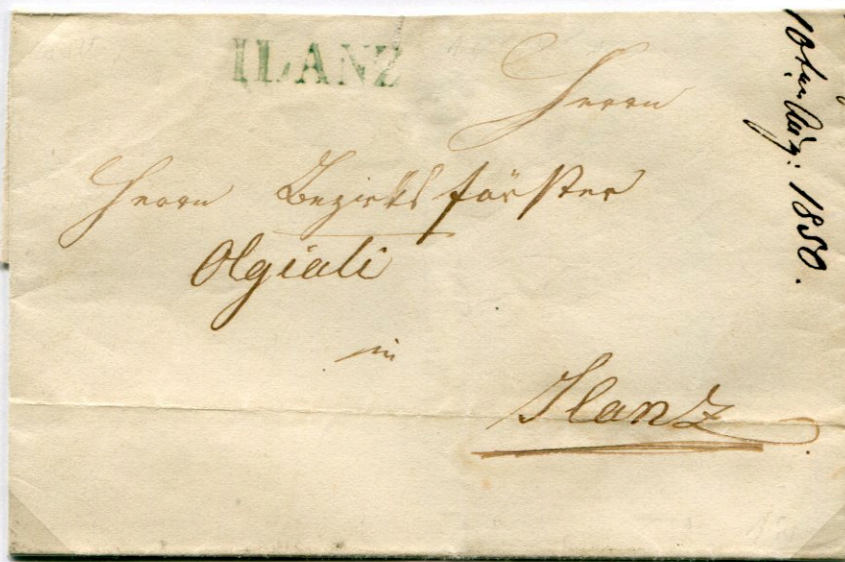 ILANZ
Herrn
Herrn Bezirksförster
Olgiati
in
Ilanz
10ten Aug: 1850.